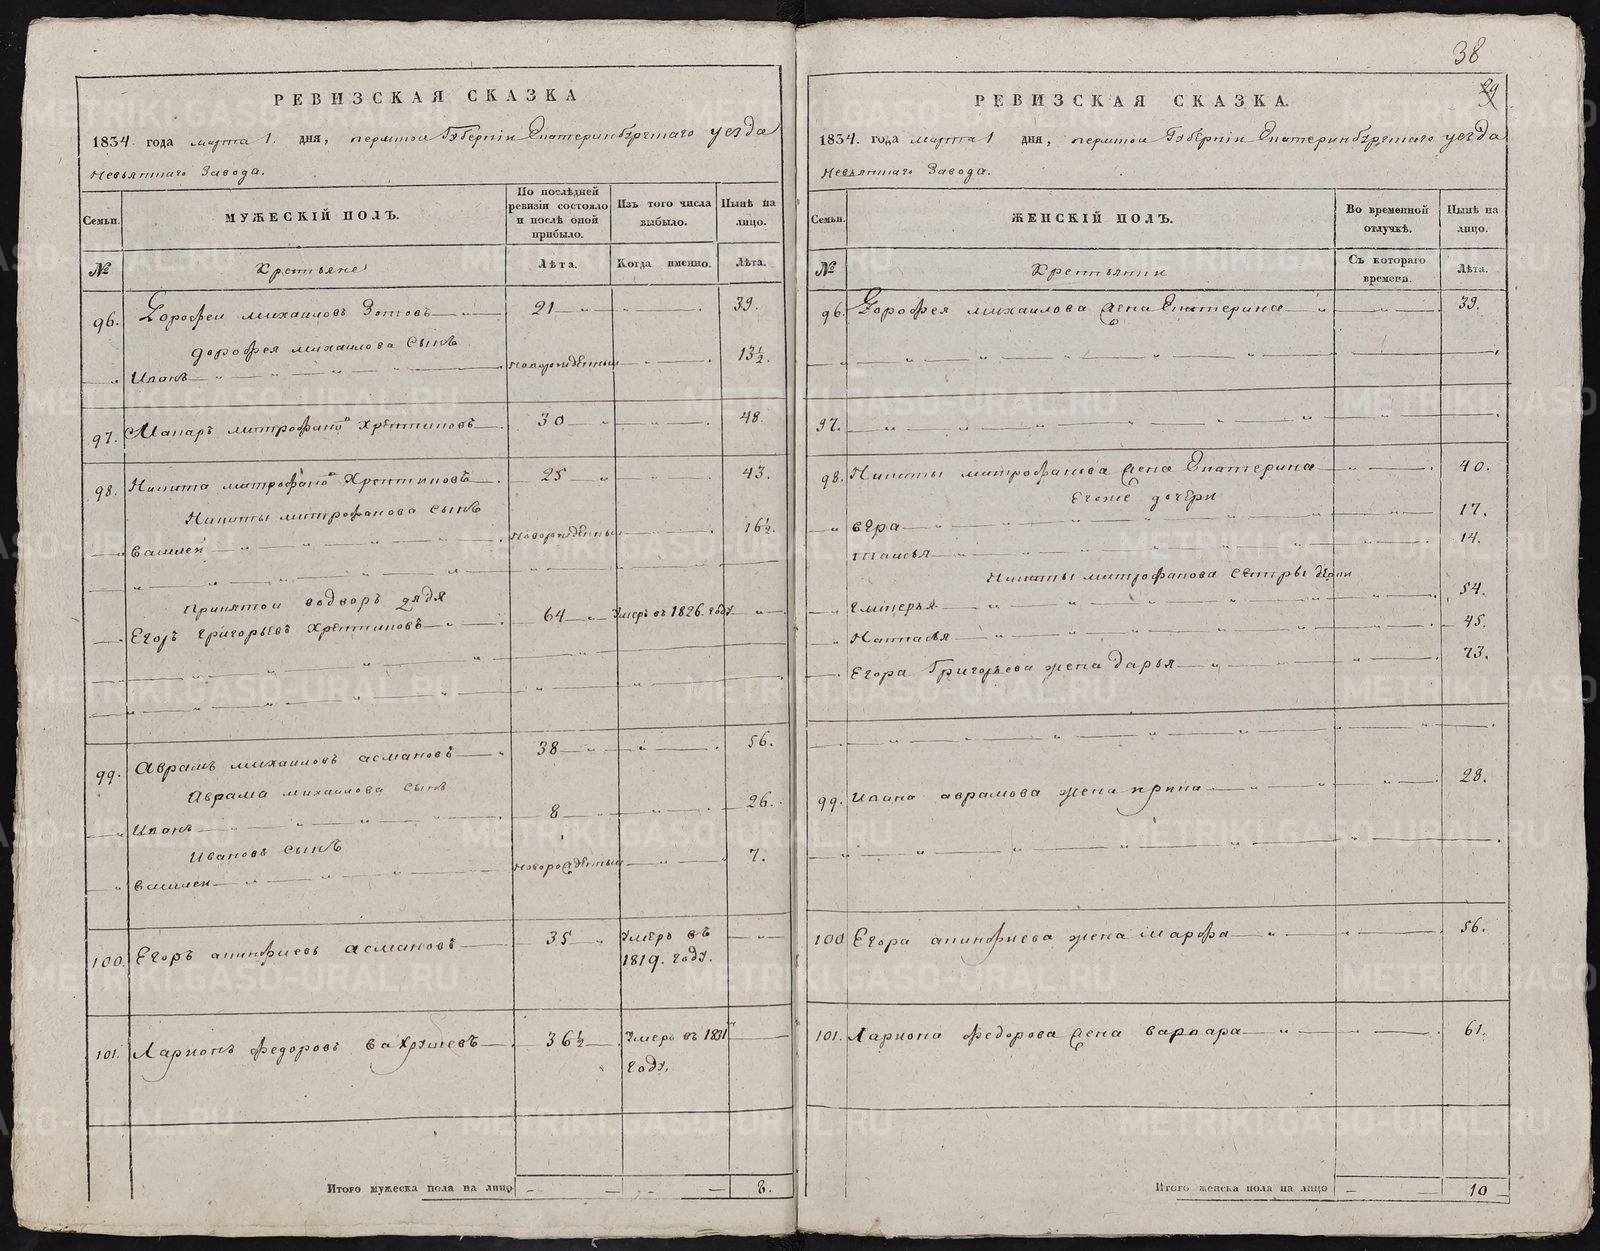 38
29
РЕВИЗСКАЯ СКАЗКА
1834 года марта 1. дня, пермской Губернiи Екатеринбургскаго уезда
Невьянскаго Завода.
Семьи.
МУЖЕСКIЙ ПОЛЪ.
По послѣдней ревизiи состояло и послѣ оной прибыло.
Изъ того числа выбыло.
Нынѣ на лицо.
№
Крестьяне
Лѣта.
Когда именно.
Лѣта.
96. Дорофеи михаиловъ Зотовъ 21 39.
дорофея михаилова сынъ
Иванъ новорожденный 13½.
97. Макаръ митрофановъ Хрептиковъ 30 48
98. Никита митрофановъ Хрептиковъ 25 43.
Никиты митрофанова сынъ
василеи новорожденный 16½.
принятой водворъ дядя
Егоръ григорьевъ Хрептиковъ 64 Умеръ въ 1826. году
99. Аврамъ михаиловъ асмановъ 38 56.
Аврама михаилова сынъ
Иванъ 8 26.
Ивановъ сынъ
василеи новорожденный 7.
100. Егоръ асмановъ 35 Умеръ въ 1819. году.
101. Ларионъ федоровъ вахрушевъ 36½ Умеръ въ 1831 году.
Итого мужеска пола на лицо 8.
РЕВИЗСКАЯ СКАЗКА.
1834. года марта 1 дня, пермской Губернiи Екатеринбургскаго уезда
Невьянскаго Завода.
Семьи.
ЖЕНСКIЙ ПОЛЪ.
Во временной отлучкѣ.
Нынѣ на лицо.
№
Крестьянки
Съ котораго времени.
Лѣта.
96. Дорофея михаилова жена Екатерина 39.
97.
98. Никиты митрофанова жена Екатерина 40.
Егоже дочери
вера 17.
Таисья 14.
Никиты митрофанова сестры
54.
Настасья 45.
Егора Григорьева жена дарья 73.
99. Ивана аврамова жена ирина 28.
100 Егора жена марфа 56.
101. Лариона федорова жена варвара 61.
Итого женска пола на лицо 10
METRIKI.GASO-URAL.RU